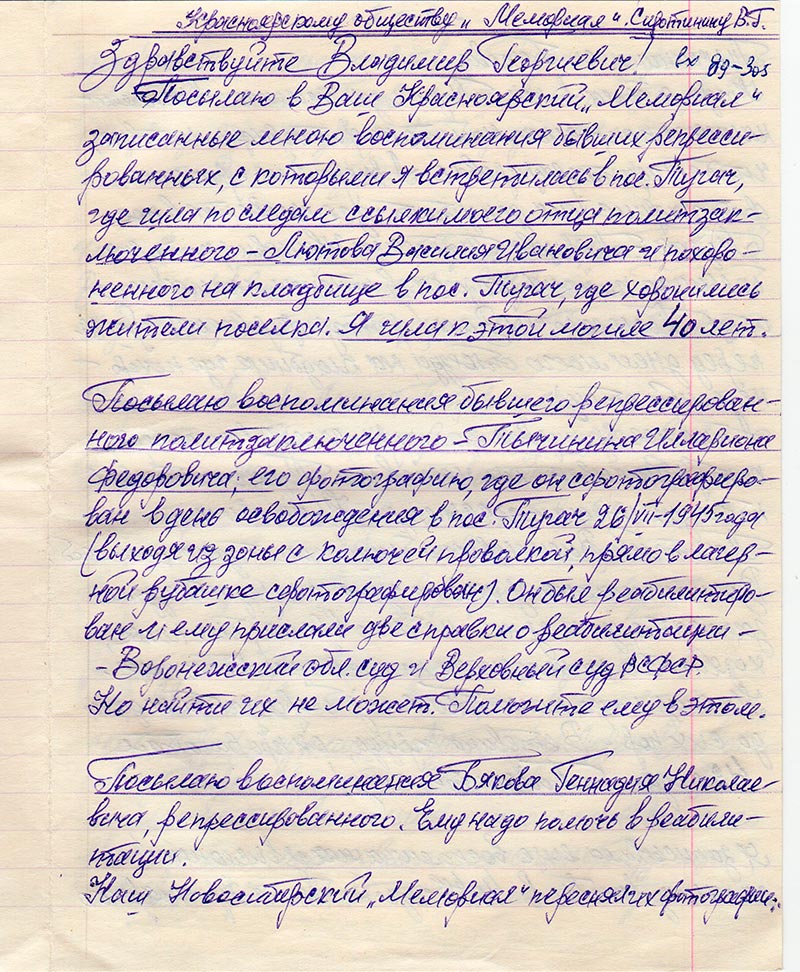 Красноярскому обществу „Мемориал“. Сиротинину В.Г.
Здравствуйте Владимир Георгиевич! вх 89-305
Посылаю в Ваш Красноярский „Мемориал“
записанные мною воспоминания бывших репресси-
рованных, с которыми я встретилась в пос. Тугач,
где шла по следам ссылки моего отца политзак-
люченного – Лютова Василия Ивановича и похоро-
ненного на кладбище в пос. Тугач, где хоронились
жители поселка. Я шла к этой могиле 40 лет.
Посылаю воспоминания бывшего репрессирован-
ного политзаключенного – Тычинина Илариона
Федоровича; его фотографию, где он сфотографиро-
ван в день освобождения в пос. Тугач 26/VII-1945 года
(выходя из зоны с колючей проволкой, прямо в лагер-
ной рубашке сфотографирован). Он был реабилитиро-
ван и ему прислали две справки о реабилитации –
– Воронежский обл. суд и Верховный суд РСФСР.
Но найти их не может. Помогите ему в этом.
Посылаю воспоминания Бякова Геннадия Николае-
вича, репрессированного. Ему надо помочь в реабили-
тации.
Наш Новосибирский „Мемориал“ переснял их фотографии.